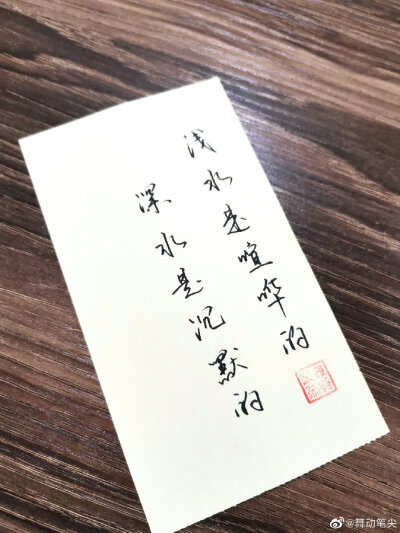 浅水是喧哗的
深水是沉默的
@舞动笔尖